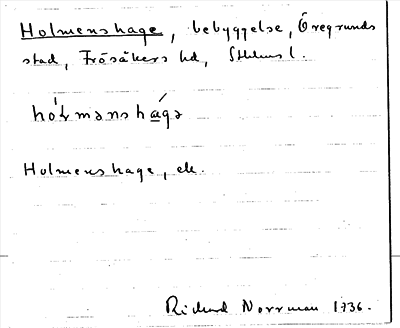 Holmenshage, bebyggelse, Öregrunds
stad, Frösåkers hd, Sthlms l.
hólmanshága
Holmenshage, ek.
Richard Norrman 1936.